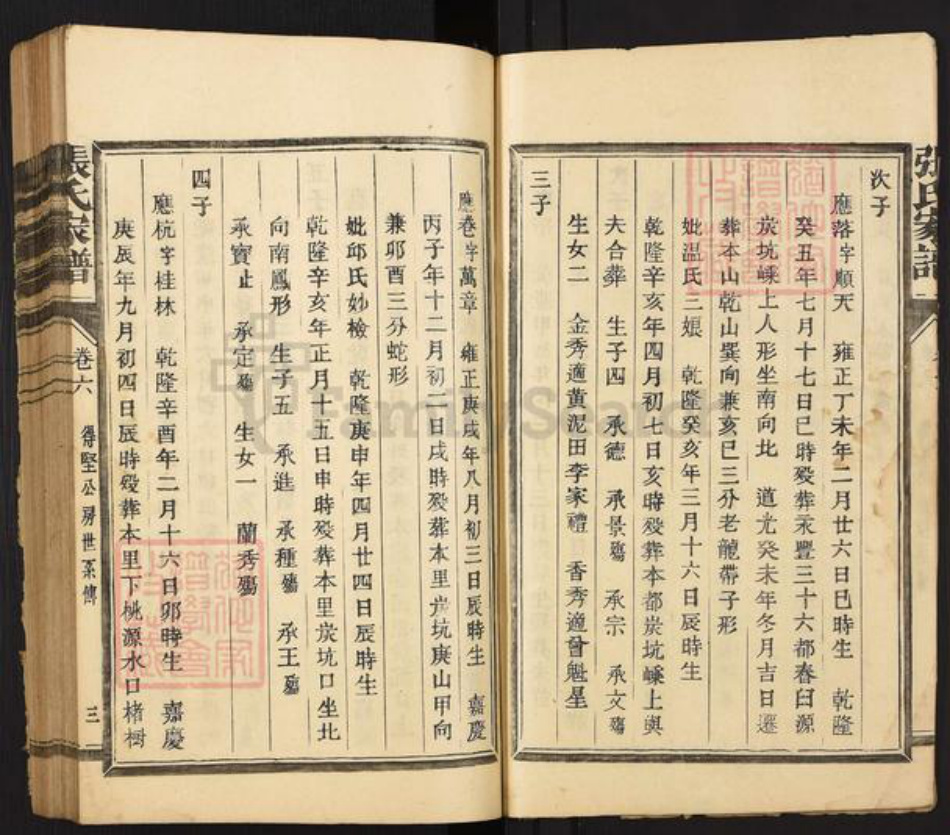 張氏家譜
次子
應落字順天 雍正丁未年二月廿六日巳時生 乾隆
癸五年七月十七日巳時歿葬永豐三十六都春臼源
炭坑嵊上人形坐南向北 道光癸未年冬月吉日遷
葬本山乾山巽向兼亥巳三分老龍帶子形
妣温氏三娘 乾隆癸亥年三月十六日辰時生
乾隆辛亥年四月初七日亥時歿葬本都炭坑嵊上與
夫合葬 生子四 承德 承景殤 承宗 承文殤
生女二 金秀適黄泥田李家禮 香秀適曾魁星
三子
應卷字萬章 雍正庚戌年八月初三日辰時生 嘉慶
丙子年十二月初二日戌時歿葬本里炭坑庚山甲向
兼卯酉三分蛇形
妣邱氏妙檢 乾隆庚申年四月廿四日辰時生
乾隆辛亥年正月十五日申時歿葬本里炭坑口坐北
向南鳳形 生子五 承進 承種殤 承王殤
承寳止 承定殤 生女一 蘭秀殤
四子
應杭字桂林 乾隆辛酉年二月十六日卯時生 嘉慶
庚辰年九月初四日辰時歿葬本里下桃源水口楮樹
張氏家譜 卷六 得堅公房世系傳 三
FamilySearch